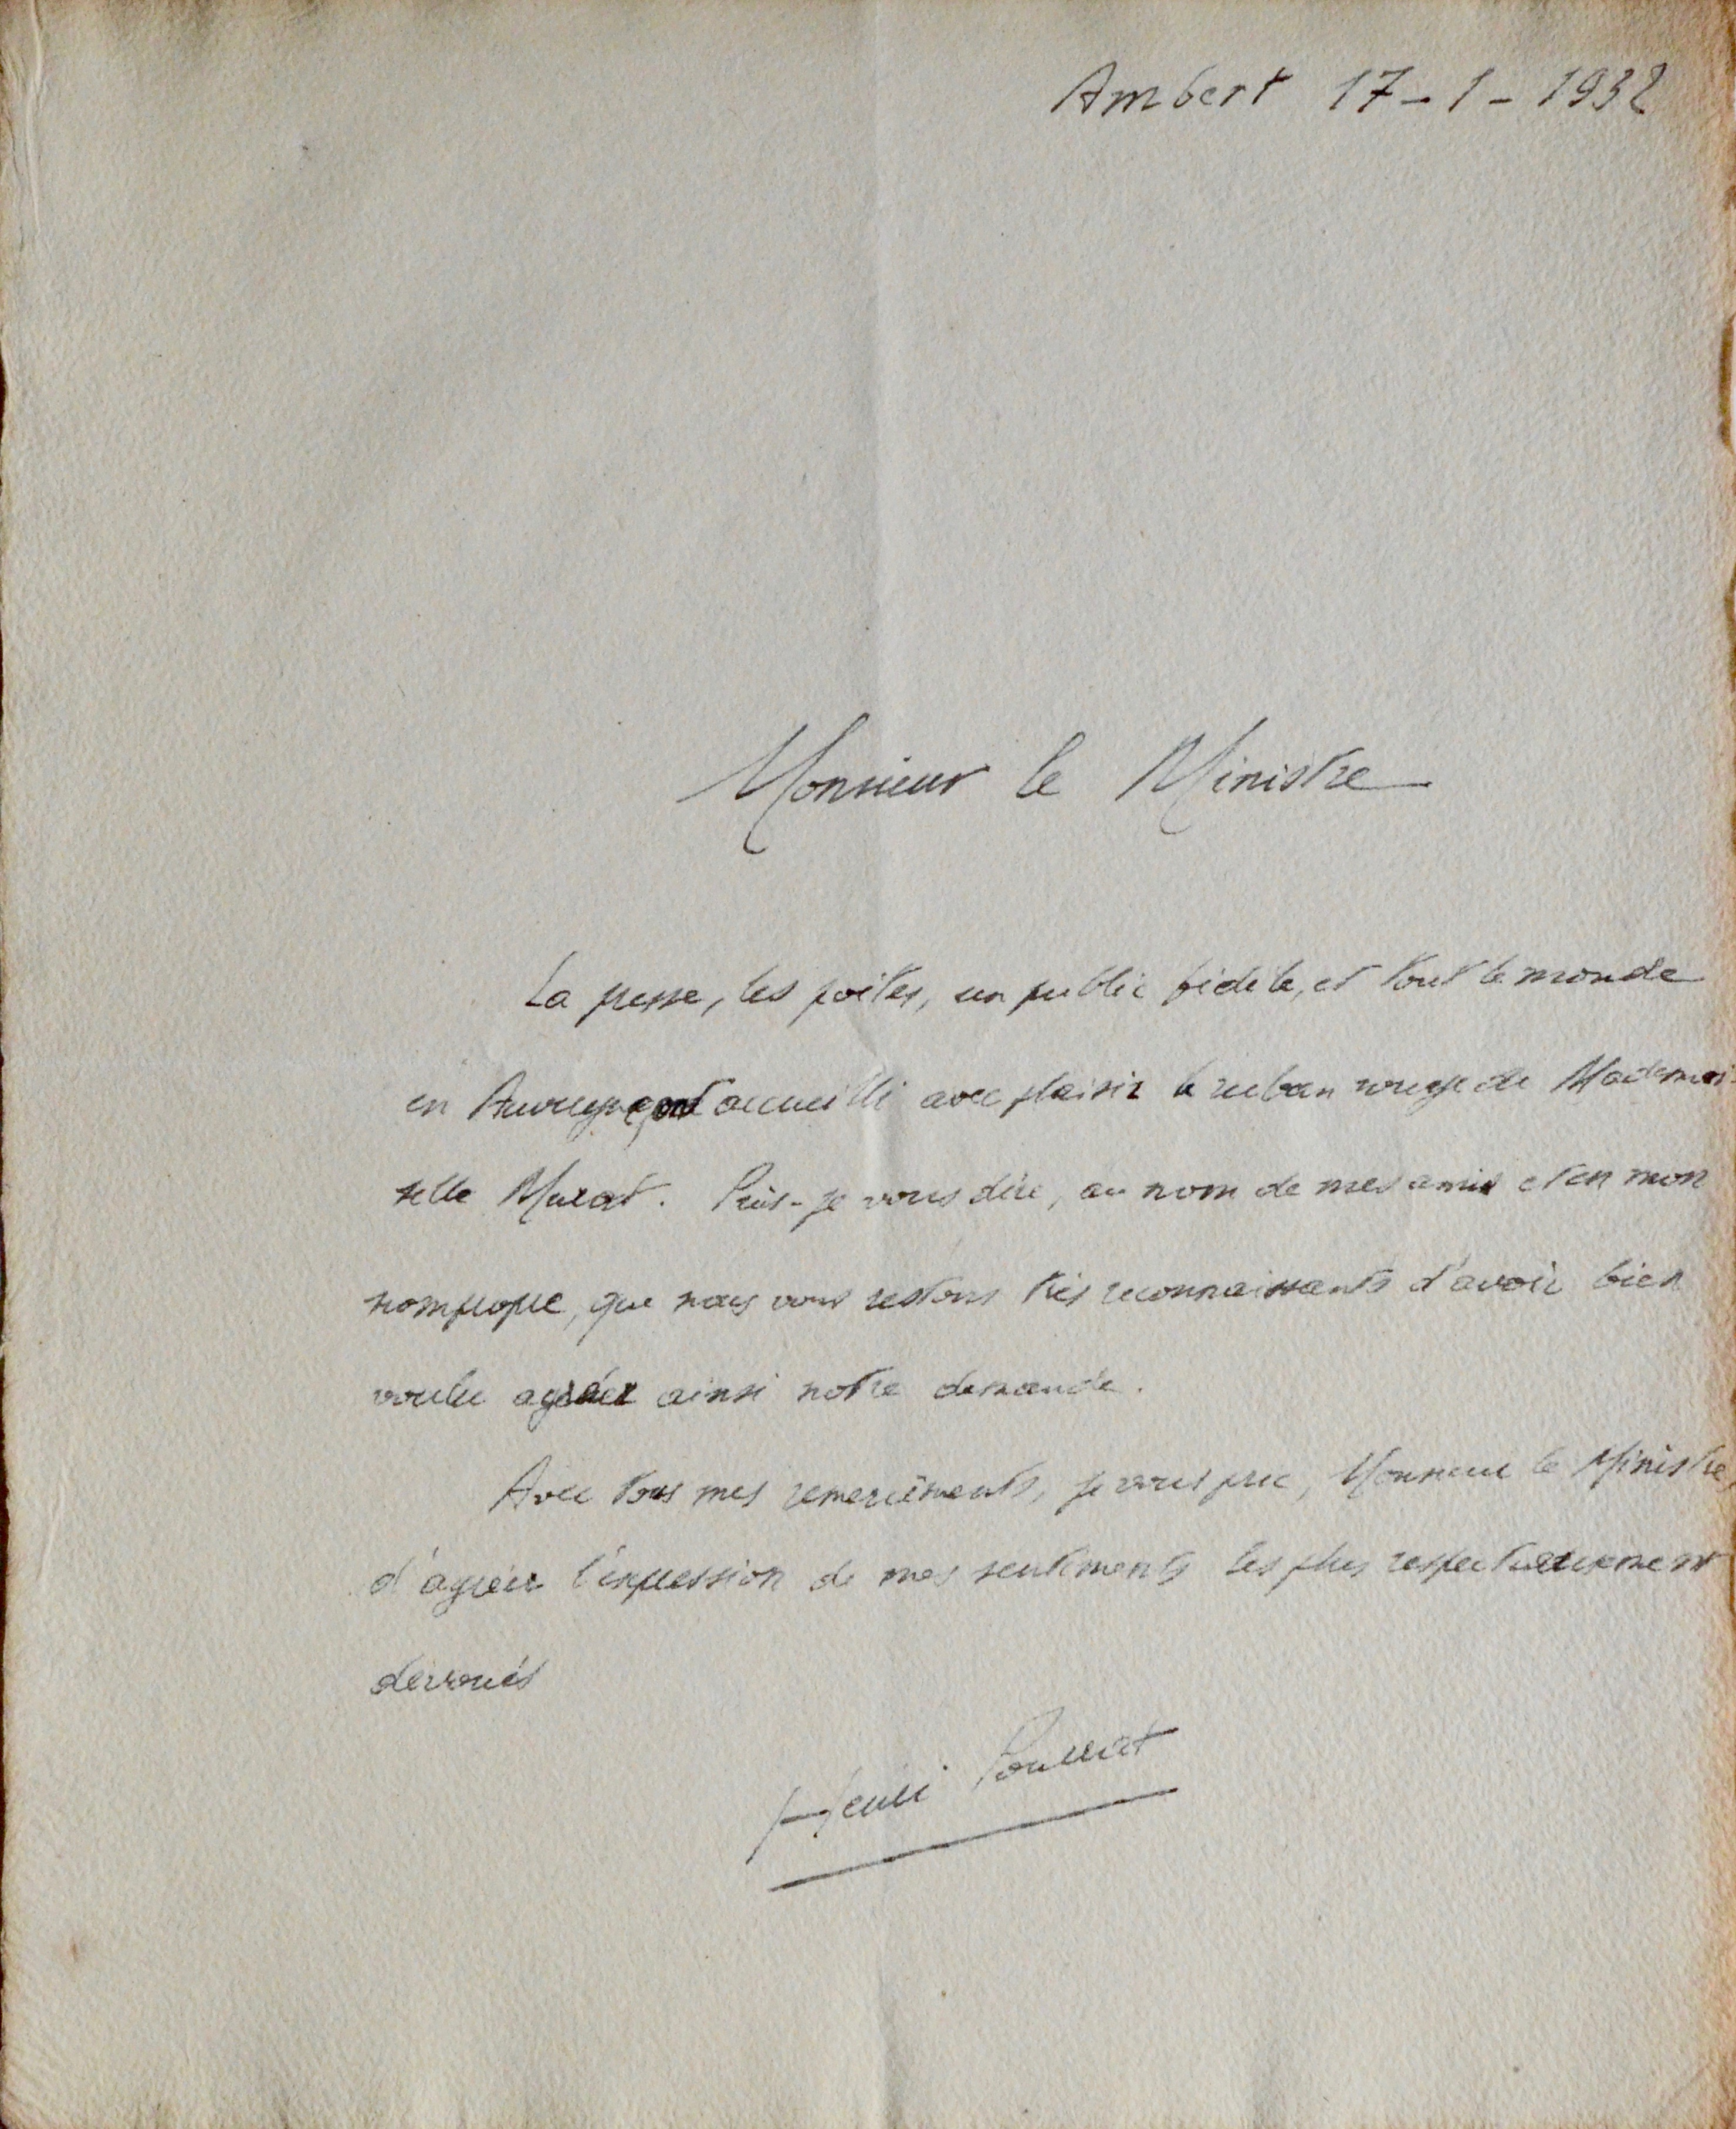 Ambert 17-1-1932
Monsieur le Ministre
La presse, les poètes, un public fidèle, et tout le monde
en Auvergne ont accueilli avec plaisir le ruban rouge de Mademoi
selle Murat. Puis-je vous dire, au nom de mes amis et en mon
nom propre, que nous vous restons très reconnaissants d'avoir bien
voulu agréer ainsi notre demande.
Avec tous mes remerciements, je vous prie, Monsieur le Ministre,
d'agréer l'expression de mes sentiments les plus respectueusement
dévoués
Henri Pourrat